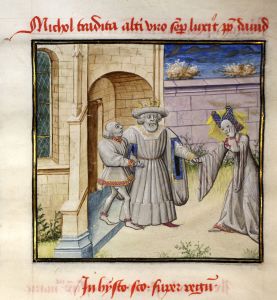 Michol tradita alti viro sep luxit pm david
In hysto. sco. super regum